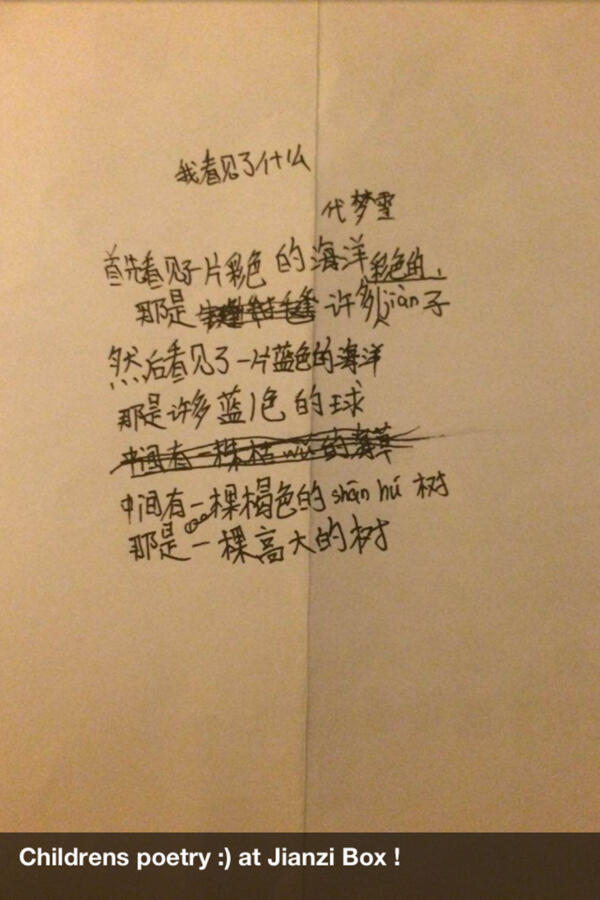 我看见了什么
代梦雪
首先看见了一片彩色的海洋彩色的,
那是许多jiàn子
然后看见了一片蓝色的海洋
那是许多蓝色的球
中间有一棵枯wū的海草
中间有一棵褐色的shān hú 树
那是一棵高大的树
Childrens poetry :) at Jianzi Box !